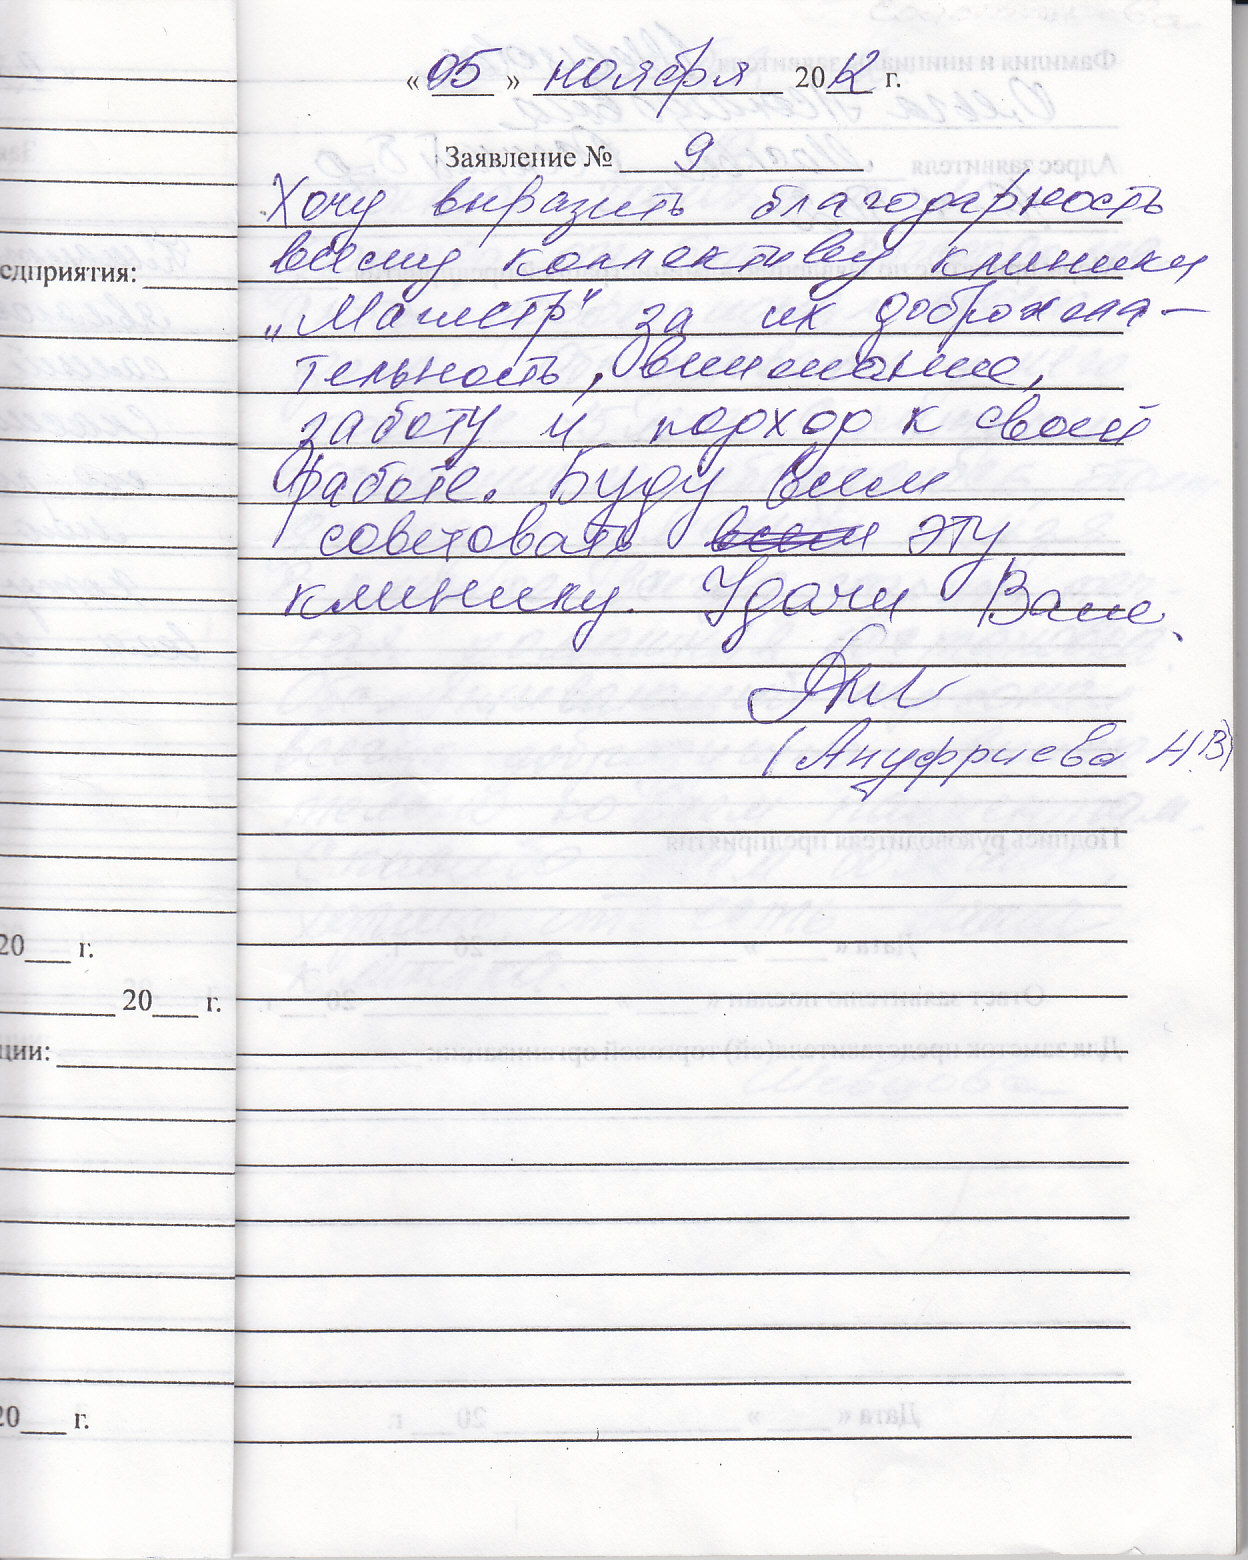 « 05 » ноября 2012 г.
Заявление № 9
Хочу выразить благодарность
всему коллективу клиники
„Магистр“ за их доброжела-
тельность, внимание,
заботу и подход к своей
работе. Буду всем
советовать всем эту
клинику. Удачи Вам.
(Ануфриева Н.В)
едприятия:
20___ г.
20___ г.
ции:
20___ г.